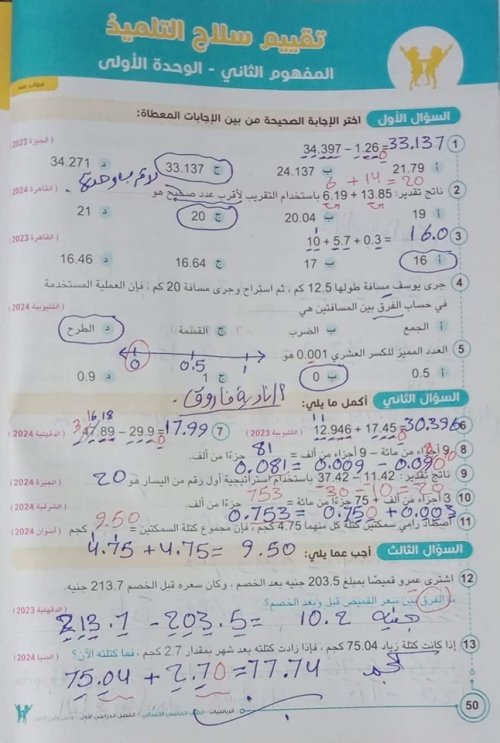 تقييم سلاح التلميذ
المفهوم الثاني - الوحدة الأولى
مجاب عنه
السؤال الأول اختر الإجابة الصحيحة من بين الإجابات المعطاة:
1 34.397 – 1.260 = 33.137 (الجيزة 2023)
أ 21.79 ب 24.137 ج 33.137 د 34.271
6 + 14 = 20
2 ناتج تقدير: 6.19 + 13.85 باستخدام التقريب لأقرب عدد صحيح هو (القاهرة 2024)
أ 19 ب 20.04 ج 20 د 21
3 10 + 5.7 + 0.3 = 16.0 (القاهرة 2023)
أ 16 ب 17 ج 16.64 د 16.46
4 جرى يوسف مسافة طولها 12.5 كم ، ثم استراح وجرى مسافة 20 كم ، فإن العملية المستخدمة
في حساب الفرق بين المسافتين هي (القليوبية 2024)
أ الجمع ب الضرب ج القسمة د الطرح
0 0.5 1
5 العدد المميز للكسر العشري 0.001 هو
أ 0.5 ب 0 ج 1 د 0.9
السؤال الثاني أكمل ما يلي:
أ/نادية فاروق
6 12.946 + 17.450 = 30.396 (القليوبية 2023)
7 47.89 – 29.90 = 17.99 (الدقهلية 2024)
8 9 أجزاء من مائة – 9 أجزاء من ألف = 81 جزءًا من ألف.
0.081 = 0.009 - 0.090
9 ناتج تقدير: 37.42 – 11.42 باستخدام استراتيجية أول رقم من اليسار هو 20 (الجيزة 2024)
30 - 10 = 20
10 3 أجزاء من ألف + 75 جزءًا من مائة = 753 جزءًا من ألف. (الشرقية 2024)
0.753 = 0.750 + 0.003
11 اصطاد رامي سمكتين كتلة كل منهما 4.75 كجم ، فإن مجموع كتلة السمكتين = 9.50 كجم (أسوان 2024)
4.75 + 4.75 = 9.50
السؤال الثالث أجب عما يلي:
12 اشترى عمرو قميصًا بمبلغ 203.5 جنيه بعد الخصم ، وكان سعره قبل الخصم 213.7 جنيه.
ما الفرق بين سعر القميص قبل وبعد الخصم؟ (الدقهلية 2023)
213.7 - 203.5 = 10.2 جنيه
13 إذا كانت كتلة زياد 75.04 كجم ، فإذا زادت كتلته بعد شهر بمقدار 2.7 كجم ، فما كتلته الآن؟ (المنيا 2024)
75.04 + 2.70 = 77.74 كجم
50 الرياضيات - الصف الخامس الابتدائي - الفصل الدراسي الأول